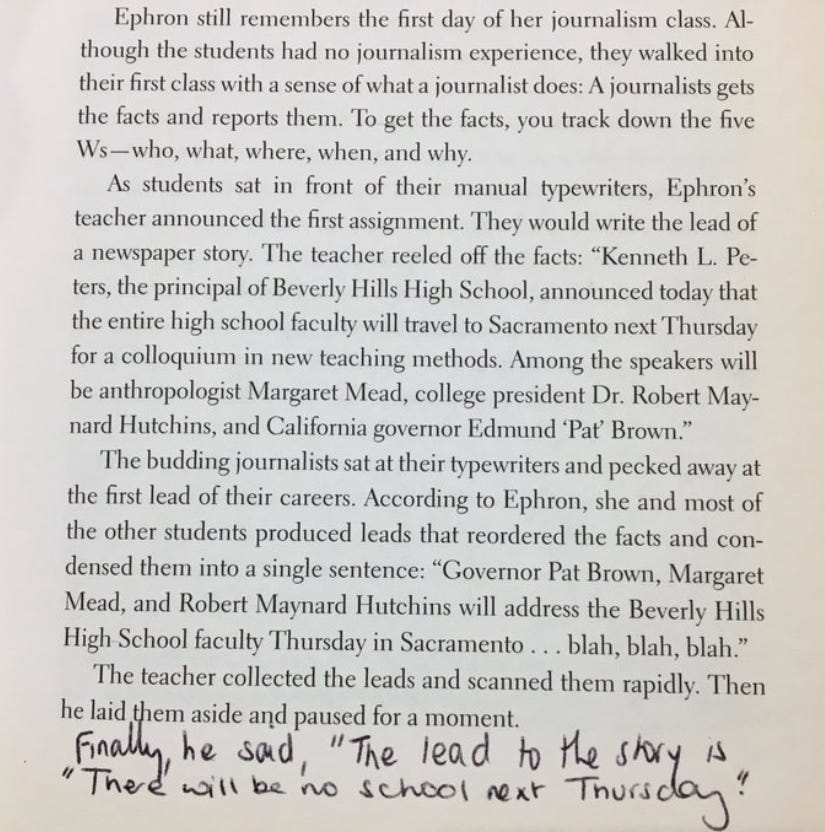 Ephron still remembers the first day of her journalism class. Al-
though the students had no journalism experience, they walked into
their first class with a sense of what a journalist does: A journalists gets
the facts and reports them. To get the facts, you track down the five
Ws—who, what, where, when, and why.
As students sat in front of their manual typewriters, Ephron's
teacher announced the first assignment. They would write the lead of
a newspaper story. The teacher reeled off the facts: "Kenneth L. Pe-
ters, the principal of Beverly Hills High School, announced today that
the entire high school faculty will travel to Sacramento next Thursday
for a colloquium in new teaching methods. Among the speakers will
be anthropologist Margaret Mead, college president Dr. Robert May-
nard Hutchins, and California governor Edmund 'Pat' Brown."
The budding journalists sat at their typewriters and pecked away at
the first lead of their careers. According to Ephron, she and most of
the other students produced leads that reordered the facts and con-
densed them into a single sentence: "Governor Pat Brown, Margaret
Mead, and Robert Maynard Hutchins will address the Beverly Hills
High School faculty Thursday in Sacramento . . . blah, blah, blah."
The teacher collected the leads and scanned them rapidly. Then
he laid them aside and paused for a moment.
Finally, he said, "The lead to the story is
"There will be no school next Thursday."